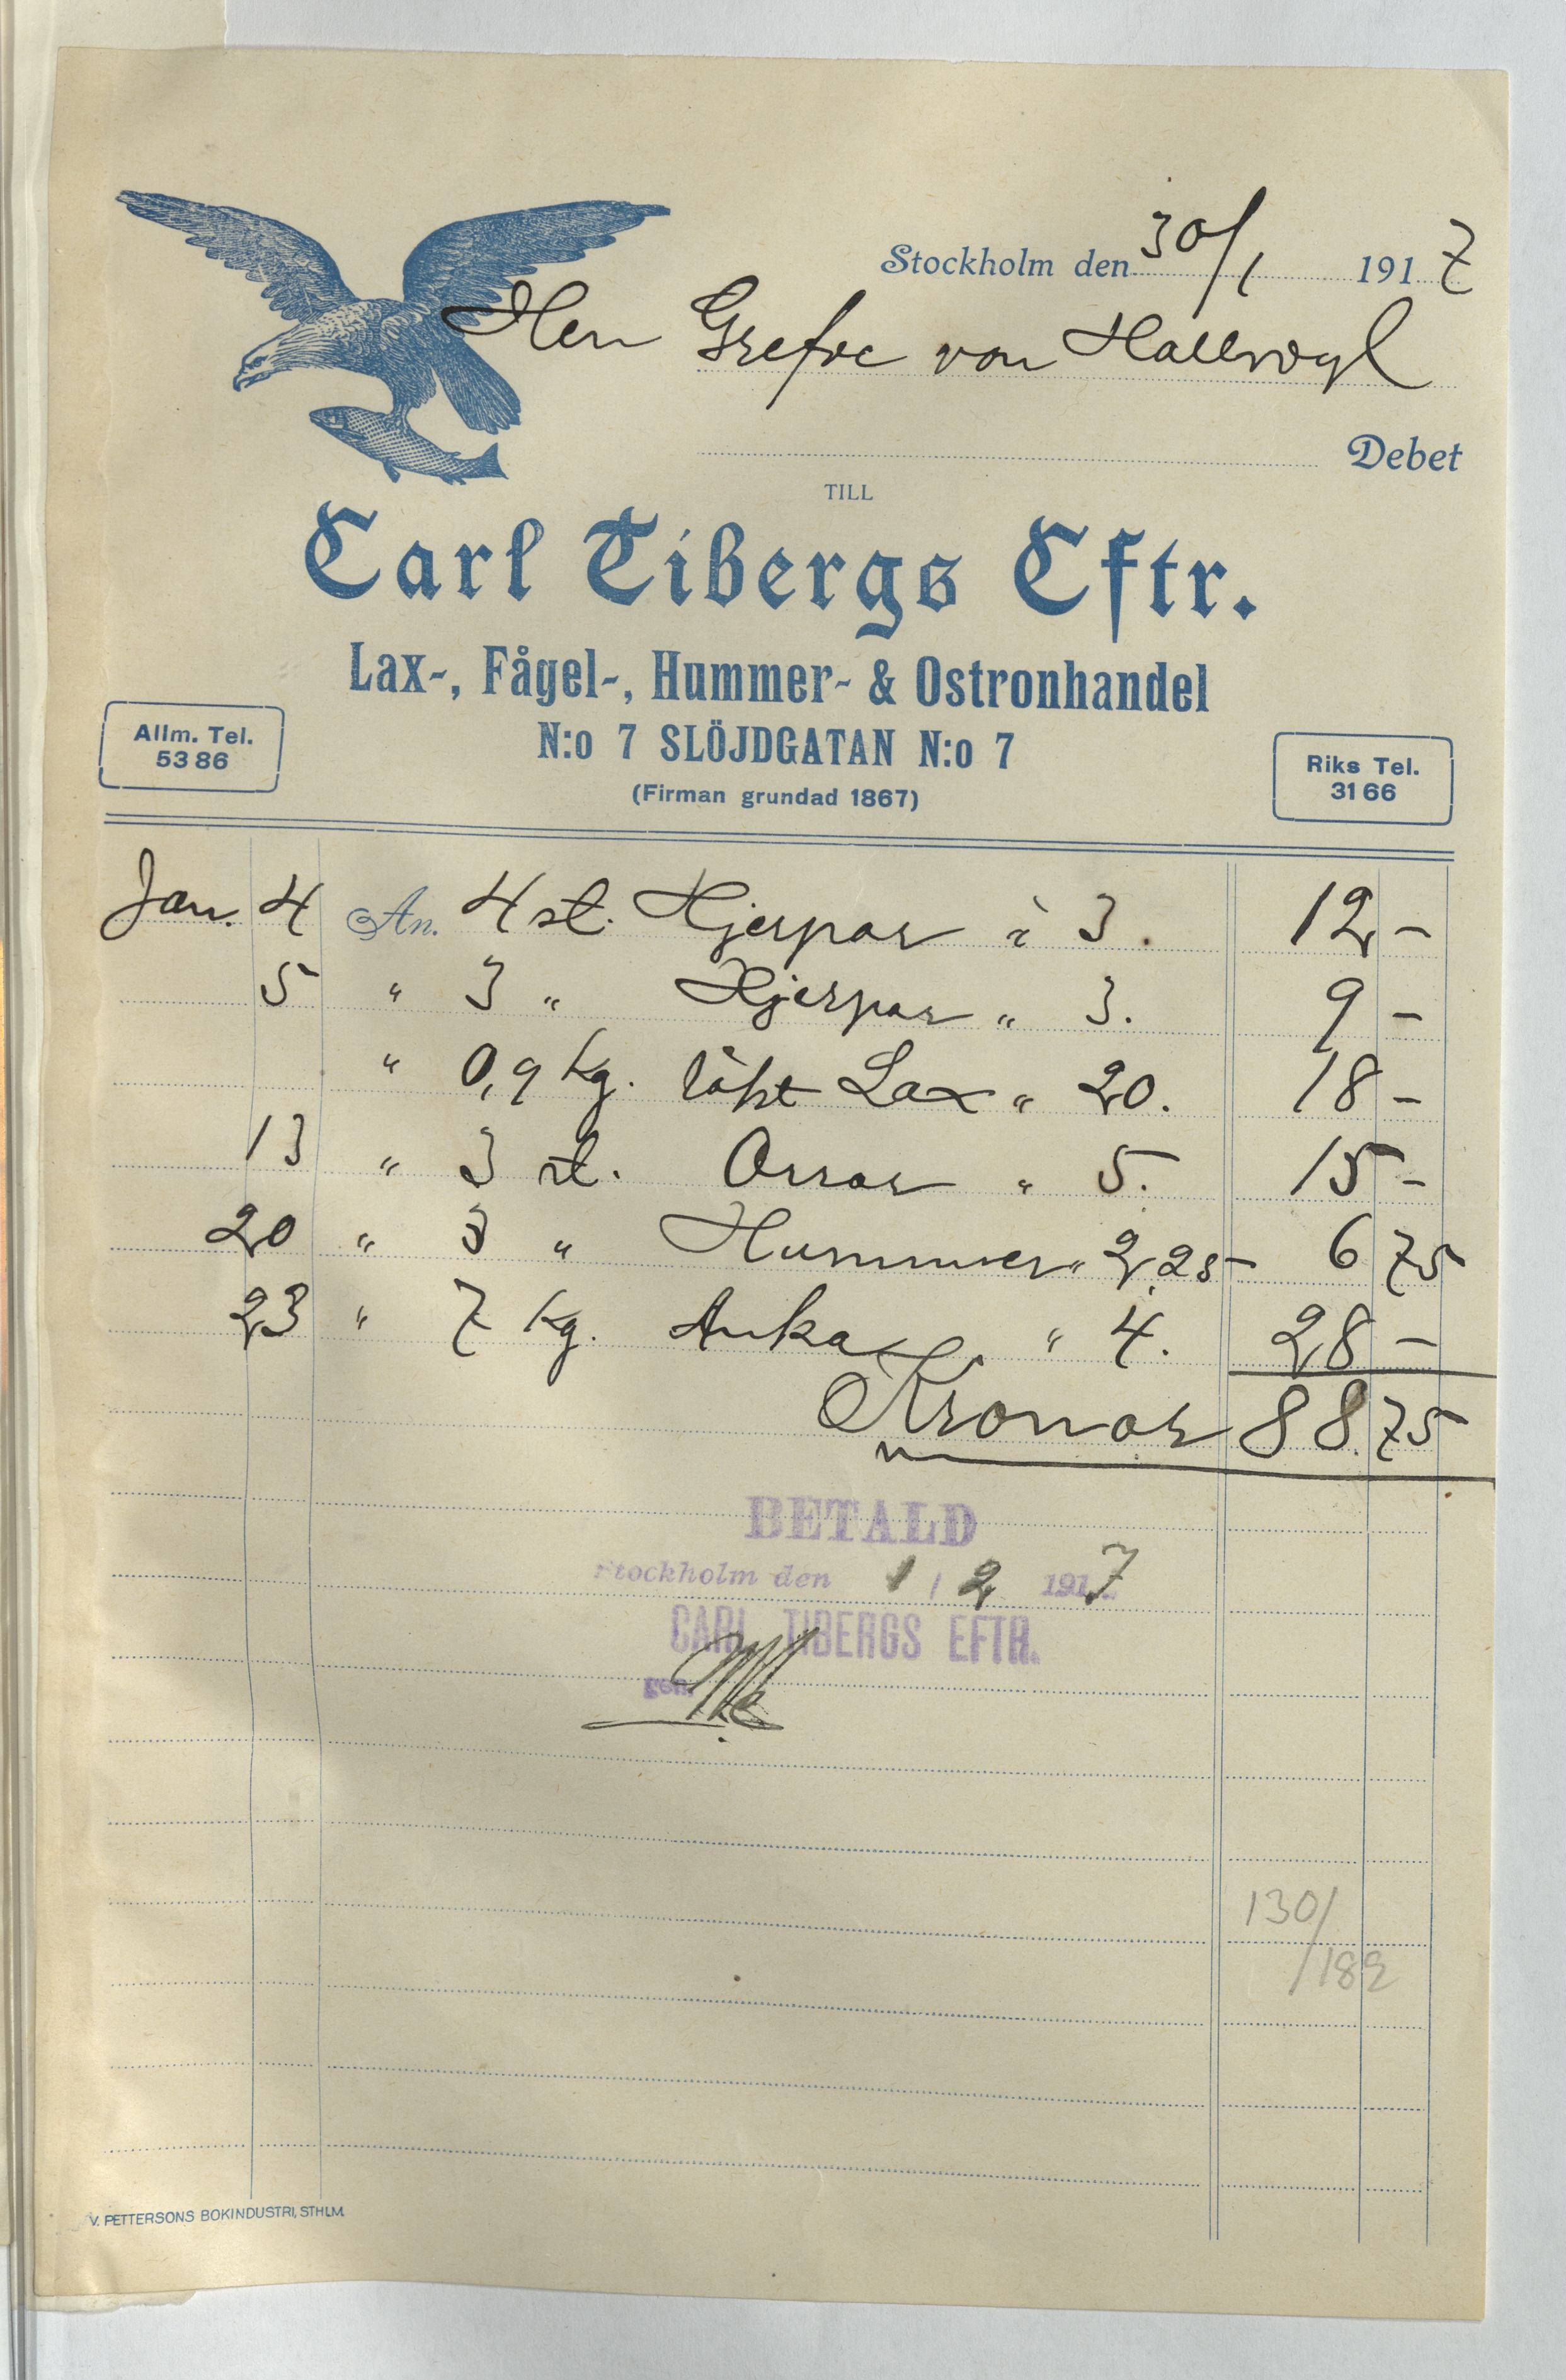 Stockholm den 30/1 1917
Herr Grefve von Hallwyl
Debet
TILL
Carl Tibergs Eftr.
Lax-, Fågel-, Hummer- & Ostronhandel
N:o 7 SLÖJDGATAN N:o 7
(Firman grundad 1867)
Allm. Tel.
53 86
Riks Tel.
31 66
Jan. 4 An. 4 st. Hjerpar à 3. 12 -
5 " 3 " Hjerpar " 3. 9 -
" 0,9 kg. rökt Lax " 20. 18 -
13 " 3 st. Orrar " 5. 15 -
20 " 3 " Hummer " 2,25 6 75
23 " 7 kg. Anka " 4. 28 -
Kronor 88.75
BETALD
Stockholm den 1/2 1917
CARL TIBERGS EFTR.
gen.
130/
/182
V. PETTERSONS BOKINDUSTRI, STHLM.